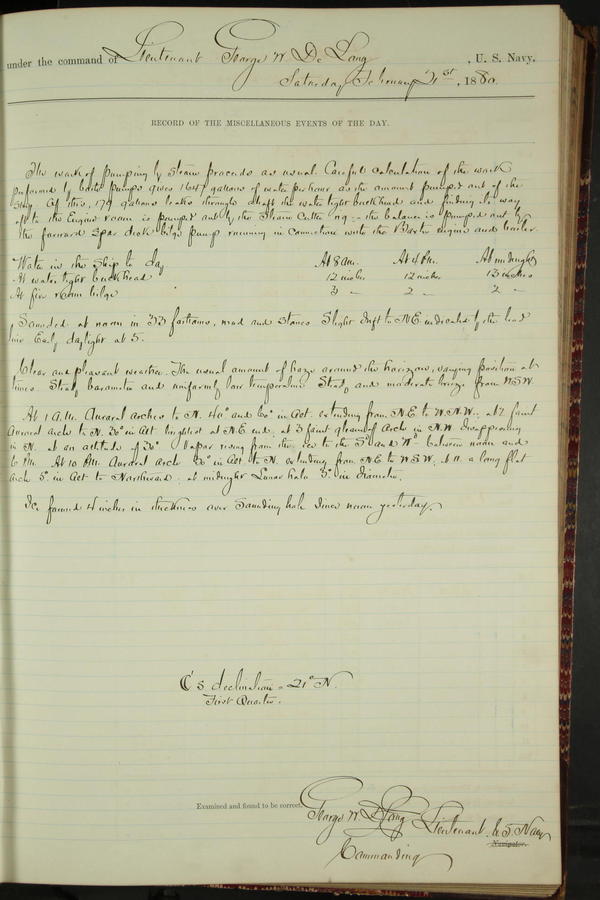 under the command of Lieutenant George W. De Long, U. S. Navy.
Saturday February 21st, 1880.
RECORD OF THE MISCELLANEOUS EVENTS OF THE DAY.
The work of pumping by steam proceeds as usual. Careful calculation of the work
performed by both pumps gives 1647 gallons of water per hour as the amount pumped out of the
ship. Of this, 179 gallons leaks through abaft the water tight bulkhead and finding its way
aft to the Engine room is pumped out by the Steam Cutter eng:- the balance is pumped out by
the forward spar deck bilge pump running in connection with the Baxter engine and boiler.
Water in the Ship to day At 8 am. At 4 P.M. At midnight
At water tight bulkhead 12 inches 12 inches 13 inches
At fire room bilge 3 " 2 " 2 "
Sounded at noon in 33 fathoms, mud and stones Slight drift to NE indicated by the lead
line Early daylight at 5.
Clear and pleasant weather. The usual amount of haze around the horizon, varying position at
times. Steady barometer and uniformly low temperature Steady and moderate breeze from WSW.
At 1 A.M. Auroral arches to N. 40° and 60° in Alt. extending from N.E. to W.N.W.; at 2 faint
Auroral arch to N. 30° in Alt. brightest at N.E. end; at 3 faint gleam of arch in N.W. disappearing
in N. at an altitude of 30° Vapor rising from the ice to the S° and W° between noon and
6 P.M. At 10 P.M. Auroral arch 30° in Alt to N. extending from N.E. to WSW, at 11 a long flat
arch 5° in Alt to Northward; at midnight Lunar halo 3° in diameter.
Ice formed 4 inches in thickness over Sounding hole Since noon yesterday.
☾'s declination = 21° N.
First Quarter.
Examined and found to be correct. George W. De Long Lieutenant U.S. Navy
Navigator.
Commanding